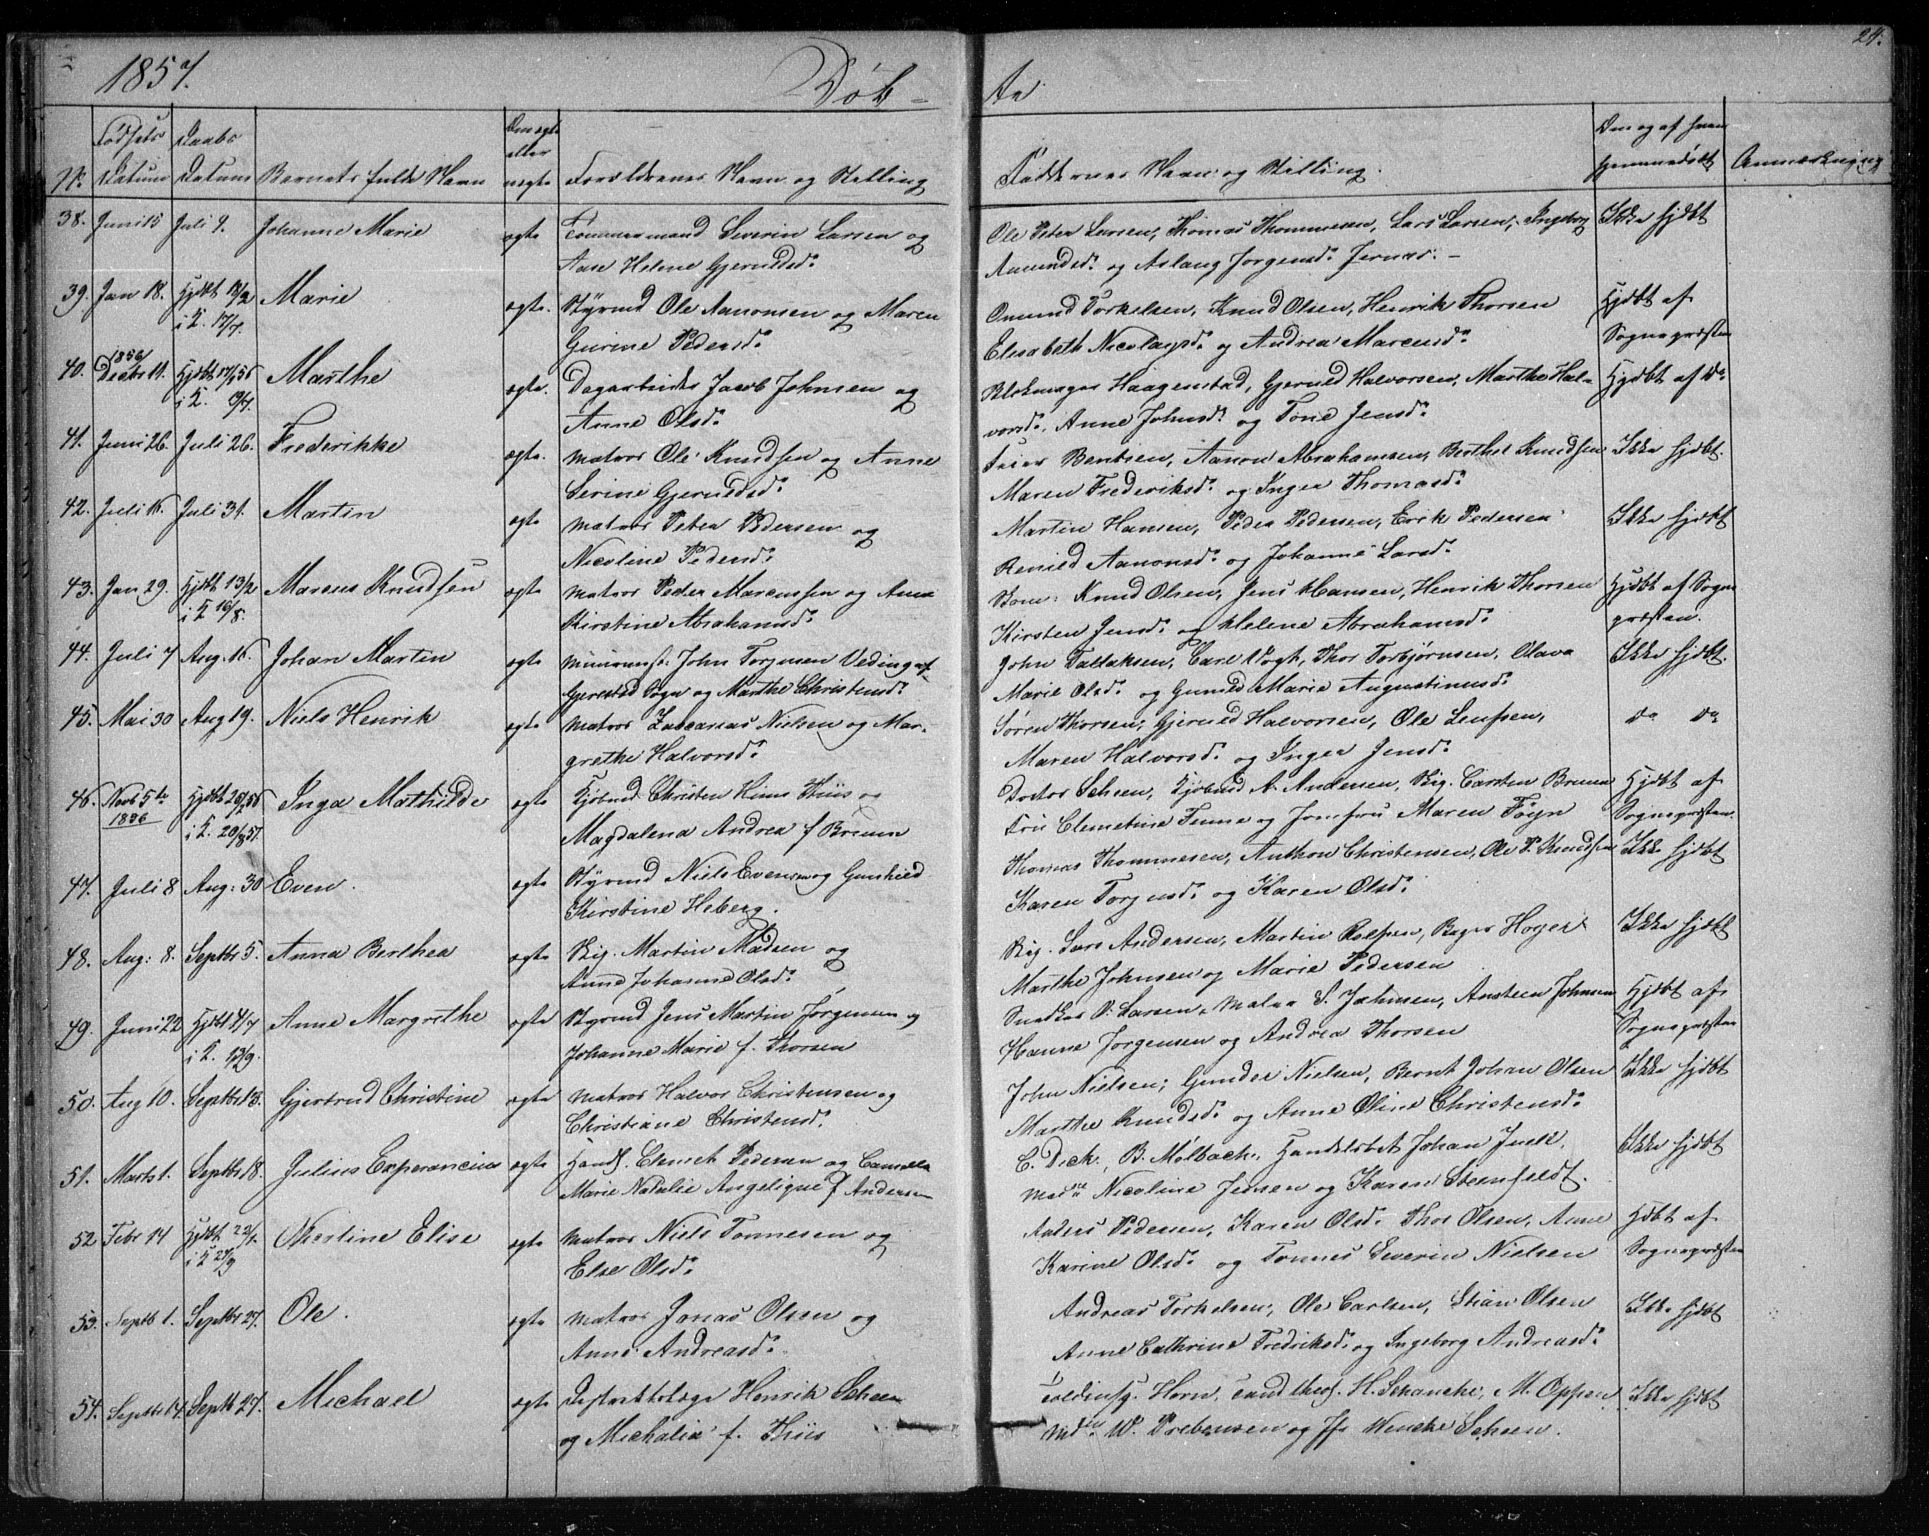 24.
1857.
Døb-
te
Fødsels Daabs
Den ægte
eller
Om og af hvem
No Datum Datum Barnets fulde Navn uægte Forældrenes Navn og Stilling Faddernes Navn og Stilling. hjemmedøbt Anmærkning
38. Juni 15 Juli 9. Johanne Marie ægte Tømmermand Severin Larsen og
Aase Helene Gjeruldsd.
Ole Peter Larsen, Thomas Thommesen, Lars Larsen, Ingeborg
Amundsd. og Aslaug Jørgensd.
Ikke hjdbt
39. Jan 18. Hjdbt
i K. 17/7. Marie ægte. Styrmd Ole Aanonsen og Maren
Gurine Pedersd.
Omund Torkelsen, Knud Olsen, Henrik Thorsen
Elisabeth Nicolaysd. og Andrea Marcusd.
Hjdbt af
Sognepresten
40. 1856
Decbr 11. Hjdbt
i K. Marthe ægte. Dagarbeider Jacob Johnsen og
Anne Olsd.
Blokmager Haagenstad, Gjeruld Halvorsen, Marthe Hal-
vorsd. Anne Johnsd. og Tone Jensd.
Hjdbt af do
41. Juni 26. Juli 26. Frederikke ægte. Matros Ole Knudsen og Anne
Serine Gjeruldsd.
Bentsen, Aanon Abrahamsen, Berthe Knudsen
Maren Frederiksd. og Inger Thomasd.
Ikke hjdbt.
42. Juli 16. Juli 31. Martin ægte Matros Peter Pedersen og
Nicoline Pedersd.
Martin Hansen, Peder Pedersen, Erik Pedersen
Aanonsd. og Johanne Larsd.
Ikke hjdbt
43. Jan 29. Hjdbt 13/2
i K 16/8. Marcus Knudsen ægte Matros Peder Marcussen og Anne
Kirstine Abrahamsd.
Knud Olsen, Jens Hansen, Henrik Thorsen
Kirsten Jensd. og Helene Abrahamsd.
Hjdbt af Sogne
præsten.
44. Juli 7 Aug. 16. Johan Martin ægte John Torjusen Veding af
Gjerestad Sogn og Marthe Christensd.
John Tallaksen, Carl Vogt, Thor Torbjørnsen, Olava
Marie Olsd. og Gunild Marie Augustinusd.
Ikke hjdbt.
45. Mai 30 Aug 19. Niels Henrik ægte Matros Zacarias Nielsen og Mar-
grethe Halvorsd.
Søren Thorsen, Gjeruld Halvorsen, Ole
Maren Halvorsd. og Inger Jensd.
do do
46. Novb 5te
1856 Hjdbt
i K. 20/8 57. Inga Mathilde ægte Kjøbmd Christen Thiis og
Magdalena Andrea f Bruun
Doctor Scheen, Kjøbmd A. Andersen, Carsten Bruun
Fru Clemetine Finne og Jomfru Maren Føyn
Hjdbt af
Sognepresten.
47. Juli 8 Aug: 30 Even. ægte Styrmd Niels Evensen og Gunhild
Kirstine Heberg.
Thomas Thommesen, Anthon Christensen, Ole P. Knudsen
Karen Torjusd. og Karen Olsd.
Ikke hjdbt
48. Aug: 8. Septbr 5. Anna Berthea ægte Martin Madsen og
Anne Johanne Olsd.
Lars Andersen, Martin Rolfsen, Bager Hoyer
Marthe Johnsen og Marie Pedersen
Ikke hjdbt
49. Juni 22 Hjdbt 4/7
i K. 13/9. Anne Margrethe ægte Styrmd Jens Martin Jørgensen og
Johanne Marie f. Thorsen
Snedker Larsen, Maler S. Johnsen, Ansteen Johnsen
Hanne Jørgensen og Andrea Thorsen
Hjdbt af
Sognepresten
50. Aug 10. Septbr 13. Gjertrud Christine ægte Matros Halvor Christensen og
Christiane Christensd.
John Nielsen, Gunder Nielsen, Bernt Johan Olsen
Marthe Knudsd. og Anne Oline Christensd.
Ikke hjdbt
51. Marts 1. Septbr 18. Julius Experancius ægte Pedersen og Camilla
Marie Natalie Angelique f Andersen
C. Dick, B. Mølbach, Johan Juell
Nicoline Jensen og Karen Steenfeldt.
Ikke hjdbt
52 Febr 14 Hjdbt
i K 27/9 Mertine Elise ægte Matros Niels Tønnesen og
Else Olsd.
Anders Pedersen, Karen Olsd. Thor Olsen, Anne
Karine Olsd. og Tønnes Severin Nielsen
Hdbt af
Sognepresten
53. Septb 1. Septbr 27. Ole. ægte Matros Jonas Olsen og
Anne Andreasd.
Andreas Torkelsen, Ole Carlsen, Stian Olsen
Anne Cathrine Fredriksd. og Ingeborg Andreasd.
Ikke hjdbt
54. Septbr 14. Septb 27. Michael ægte Destriktslæge Henrik Scheen
og Michalia f. Thiis
Horn, H. Schanche, M. Oppen
W. Prebensen og Wencke Scheen.
Ikke hjdbt